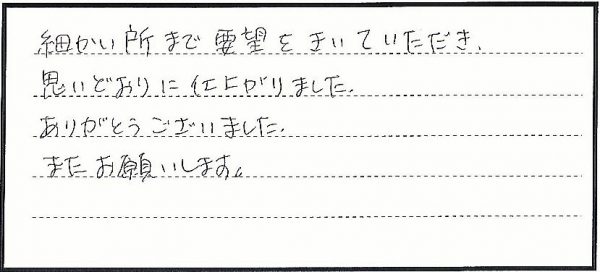 細かい所まで要望をきいていただき、
思いどおりに仕上がりました。
ありがとうございました。
またお願いします。